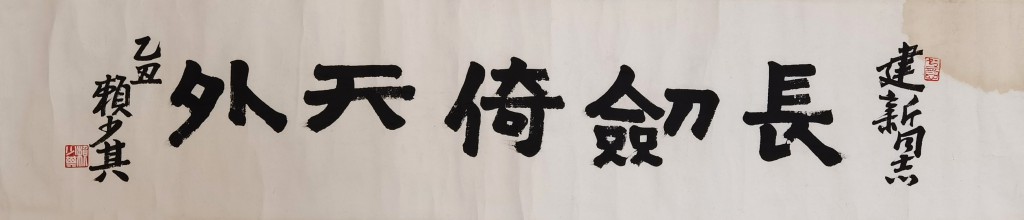 建新同志
長劒倚天外
乙丑
賴少其